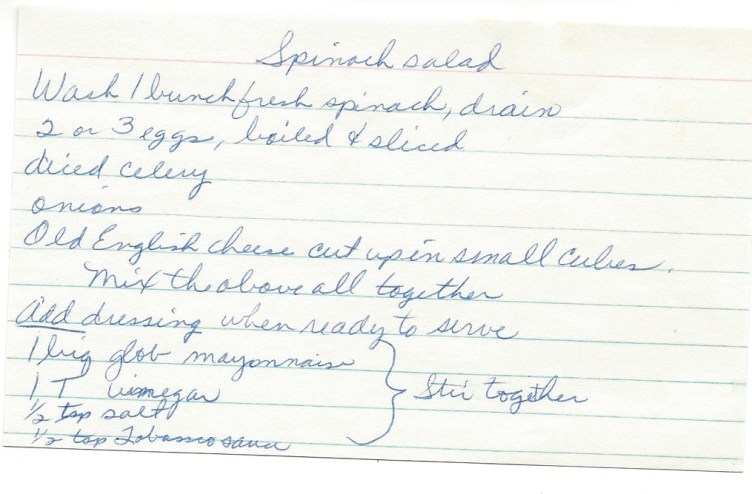 Spinach salad
Wash 1 bunch fresh spinach, drain
2 or 3 eggs, boiled & sliced
diced celery
onions
Old English cheese cut up in small cubes.
Mix the above all together
Add dressing when ready to serve
1 big glob mayonnaise
1 T vinegar
Stir together
1/2 tsp salt
1/2 tsp Tobassco sauce